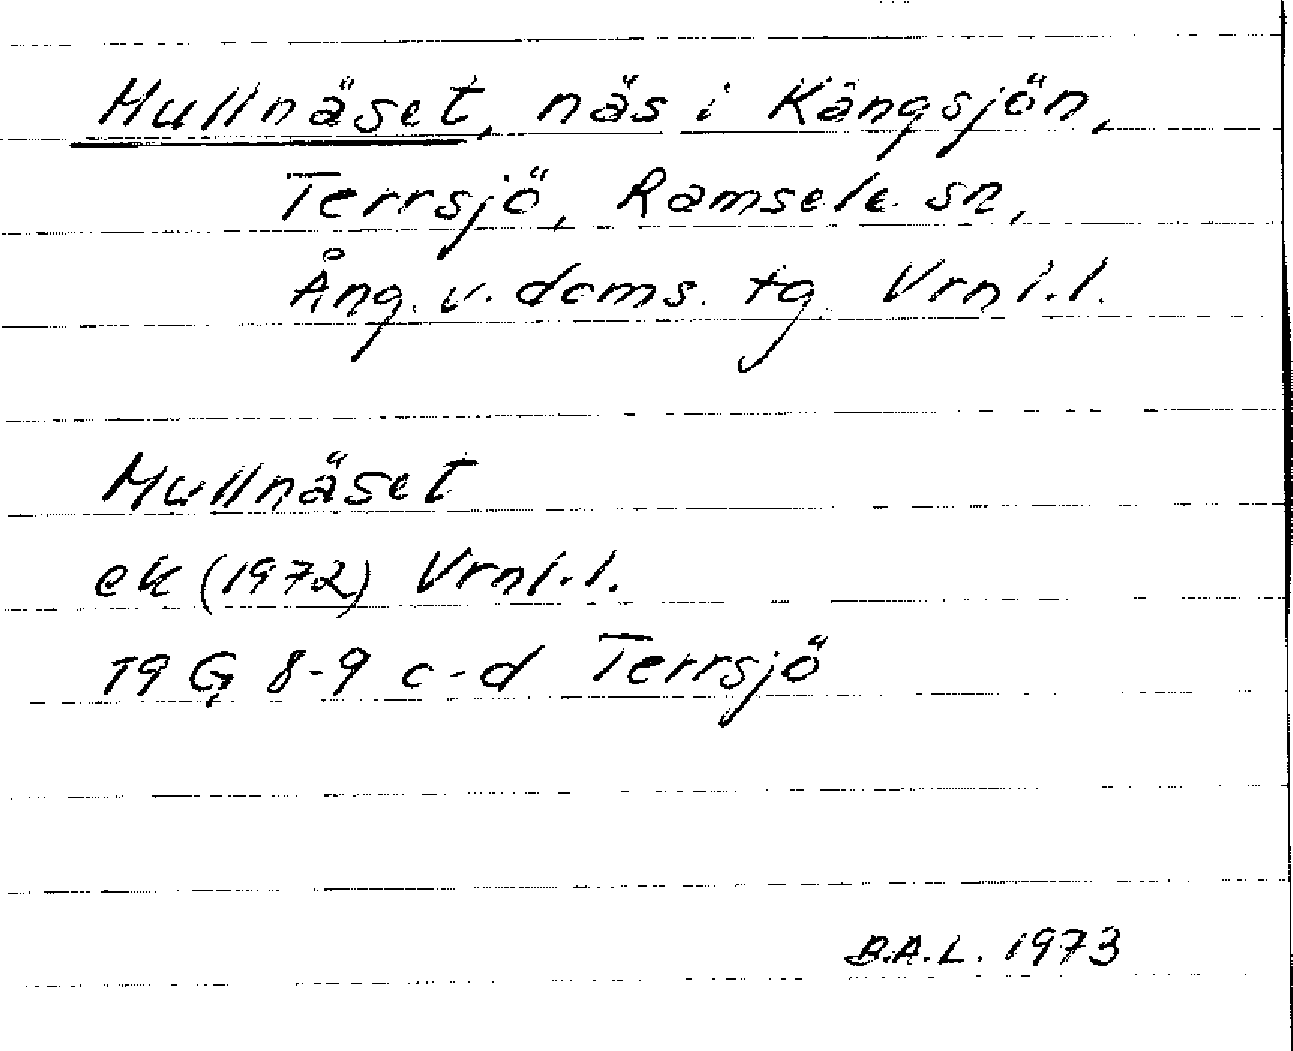 Mullnäset, näs i Kängsjön,
Terrsjö, Ramsele sn,
Ång. v. doms. tg. Vrnl.l.
Mullnäset
ek (1972) Vrnl.l.
19 G 8-9 c-d Terrsjö
B.A.L. 1973